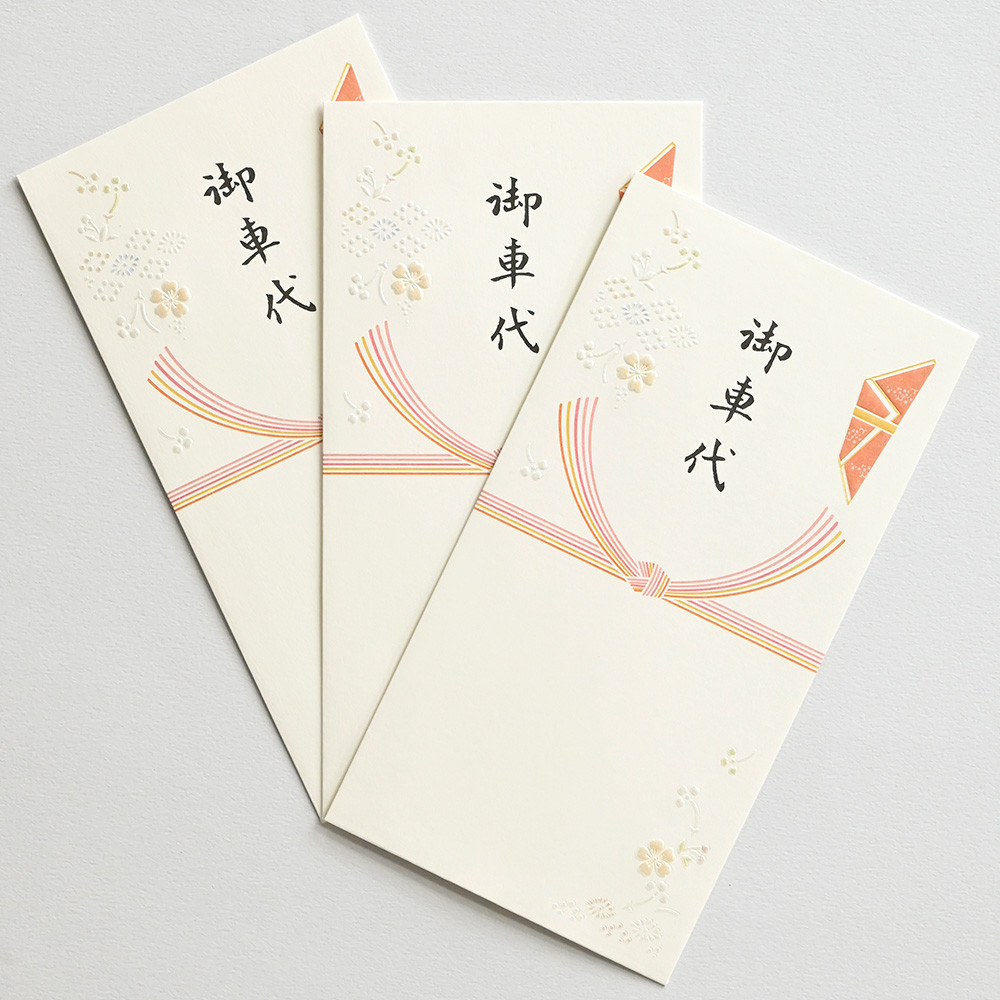 御車代
御車代
御車代